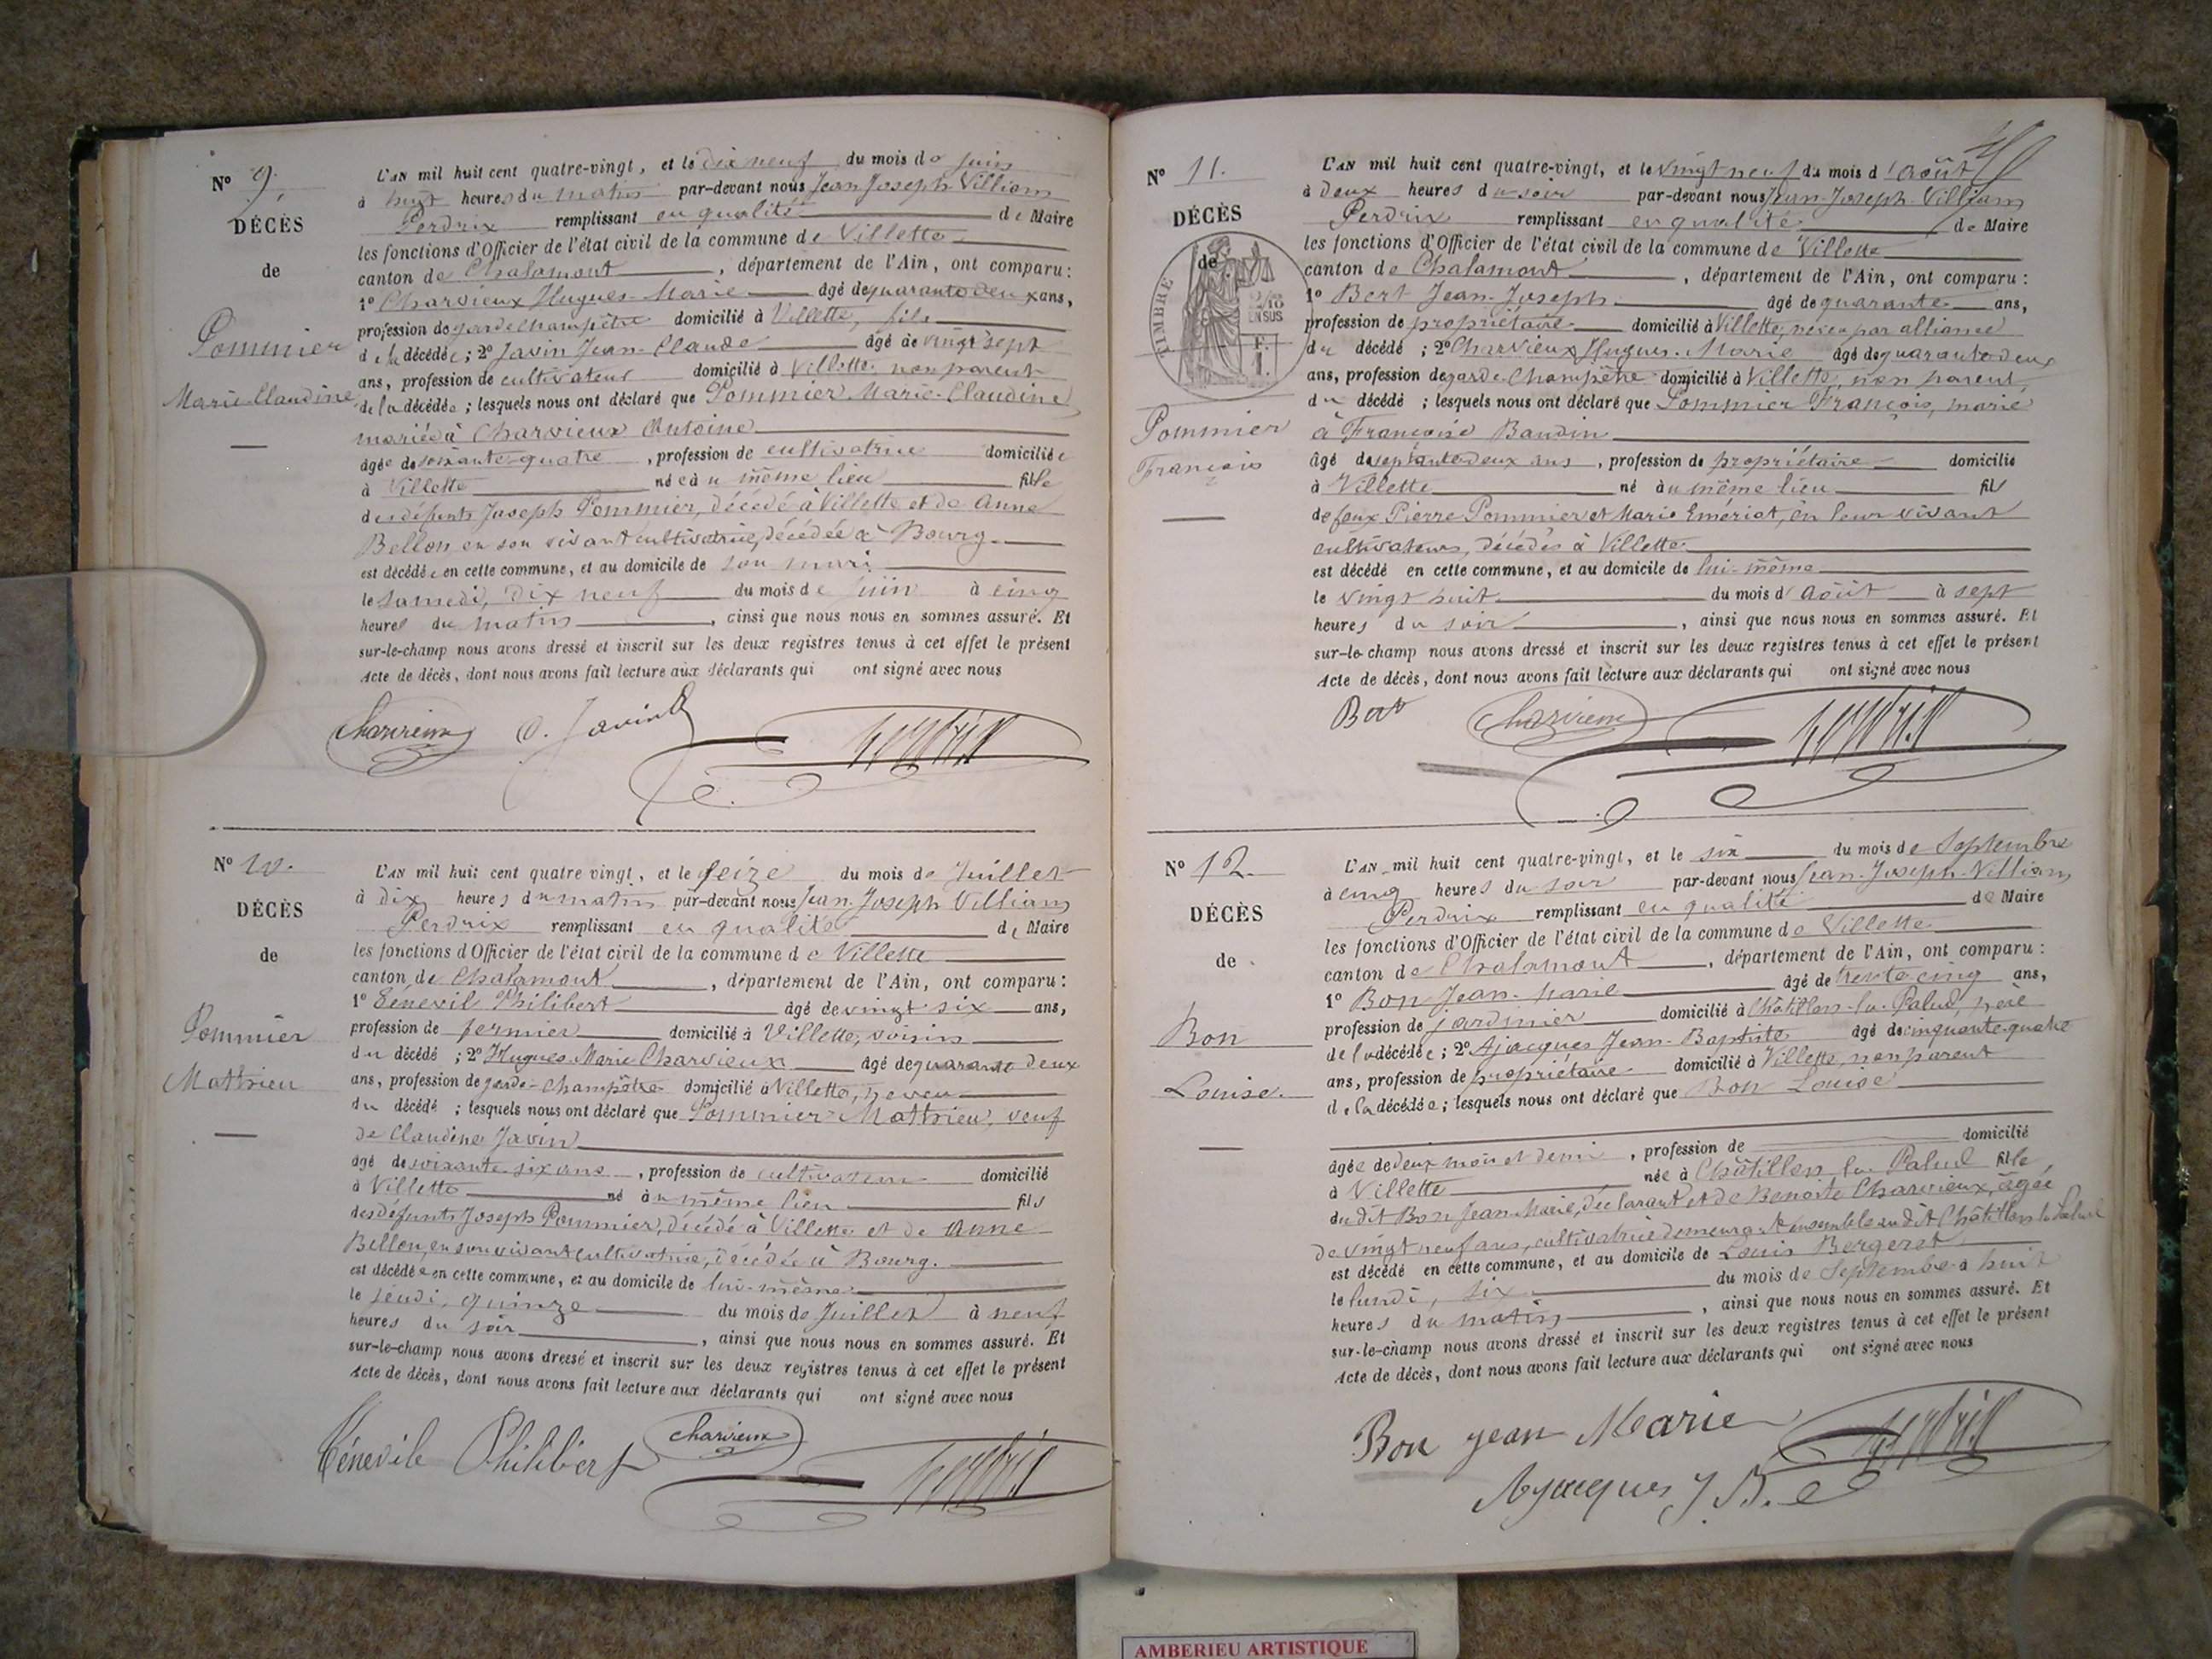 Nº 9.
DÉCÈS
de
Pommier
Marie Claudine
L'AN mil huit cent quatre-vingt, et le dix neuf du mois de juin
à huit heures du matin par-devant nous Jean Joseph Villiam
Perdrix remplissant en qualité de Maire
les fonctions d'Officier de l'état civil de la commune de Villette
canton de Chalamont, département de l'Ain, ont comparu :
1º Charvieux Hugues-Marie âgé de quarante deux ans,
profession de garde champêtre domicilié à Villette, fils
de la décédée ; 2º Javin Jean-Claude âgé de vingt sept
ans, profession de cultivateur domicilié à Villette, non parent
de la décédée ; lesquels nous ont déclaré que Pommier Marie-Claudine
mariée à Charvieux Antoine
âgée de soixante-quatre, profession de cultivatrice domiciliée
à Villette née au même lieu fille
des défunts Joseph Pommier, décédé à Villette et de Anne
Bellon en son vivant cultivatrice, décédée à Bourg.
est décédée en cette commune, et au domicile de son mari
le samedi, dix neuf du mois de juin à cinq
heures du matin, ainsi que nous nous en sommes assuré. Et
sur-le-champ nous avons dressé et inscrit sur les deux registres tenus à cet effet le présent
Acte de décès, dont nous avons fait lecture aux déclarants qui ont signé avec nous
Charvieux Javin Perdrix
Nº 10.
DÉCÈS
de
Pommier
Mathieu
L'AN mil huit cent quatre vingt, et le seize du mois de Juillet
à dix heures du matin par-devant nous Jean-Joseph Villiam
Perdrix remplissant en qualité de Maire
les fonctions d'Officier de l'état civil de la commune de Villette
canton de Chalamont, département de l'Ain, ont comparu :
1º Ténevil Philibert âgé de vingt six ans,
profession de fermier domicilié à Villette, voisin
du décédé ; 2º Hugues Marie Charvieux âgé de quarante deux
ans, profession de garde-champêtre domicilié à Villette, neveu
du décédé ; lesquels nous ont déclaré que Pommier Mathieu, veuf
de Claudine Javin
âgé de soixante-six ans, profession de cultivateur domicilié
à Villette né au même lieu fils
des défunts Joseph Pommier, décédé à Villette et de Anne
Bellon, en son vivant cultivatrice, décédée à Bourg.
est décédé en cette commune, et au domicile de lui-même
le jeudi, quinze du mois de Juillet à neuf
heures du soir, ainsi que nous nous en sommes assuré. Et
sur-le-champ nous avons dressé et inscrit sur les deux registres tenus à cet effet le présent
Acte de décès, dont nous avons fait lecture aux déclarants qui ont signé avec nous
Ténevile Philibert Charvieux Perdrix
Nº 11.
DÉCÈS
de
TIMBRE
EN SUS
Pommier
François
L'AN mil huit cent quatre-vingt, et le vingt neuf du mois d'Août
à deux heures du soir par-devant nous Jean-Joseph-Villiam
Perdrix remplissant en qualité de Maire
les fonctions d'Officier de l'état civil de la commune de Villette
canton de Chalamont, département de l'Ain, ont comparu :
1º Bert Jean-Joseph âgé de quarante ans,
profession de propriétaire domicilié à Villette, neveu par alliance
du décédé ; 2º Charvieux Hugues-Marie âgé de quarante deux
ans, profession de garde-Champêtre domicilié à Villette, non parent
du décédé ; lesquels nous ont déclaré que Pommier François, marié
à Françoise Baudin
âgé de septante deux ans, profession de propriétaire domicilié
à Villette né au même lieu fils
de feux Pierre Pommier et Marie Emériat, en leur vivant
cultivateurs, décédés à Villette
est décédé en cette commune, et au domicile de lui-même
le vingt huit du mois d'août à sept
heures du soir, ainsi que nous nous en sommes assuré. Et
sur-le-champ nous avons dressé et inscrit sur les deux registres tenus à cet effet le présent
Acte de décès, dont nous avons fait lecture aux déclarants qui ont signé avec nous
Bert Charvieux Perdrix
Nº 12.
DÉCÈS
de
Bon
Louise.
L'AN mil huit cent quatre-vingt, et le six du mois de Septembre
à cinq heures du soir par-devant nous Jean-Joseph-Villiam
Perdrix remplissant en qualité de Maire
les fonctions d'Officier de l'état civil de la commune de Villette
canton de Chalamont, département de l'Ain, ont comparu :
1º Bon Jean-Marie âgé de trente cinq ans,
profession de jardinier domicilié à Châtillon-la-Palud, père
de la décédée ; 2º Ajacques Jean-Baptiste âgé de cinquante-quatre
ans, profession de propriétaire domicilié à Villette, non parent
de la décédée ; lesquels nous ont déclaré que Bon Louise
âgée de deux mois et demi, profession de domicilié
à Villette née à Châtillon la Palud fille
du dit Bon Jean-Marie, déclarant et de Benoite Charvieux, âgée
de vingt neuf ans, cultivatrice demeurant ensemble au dit Châtillon la Palud
est décédé en cette commune, et au domicile de Louis Bergeret
le lundi, six du mois de Septembre à huit
heures du matin, ainsi que nous nous en sommes assuré. Et
sur-le-champ nous avons dressé et inscrit sur les deux registres tenus à cet effet le présent
Acte de décès, dont nous avons fait lecture aux déclarants qui ont signé avec nous
Bon jean Marie Perdrix
Ajacques J B.
AMBERIEU ARTISTIQUE